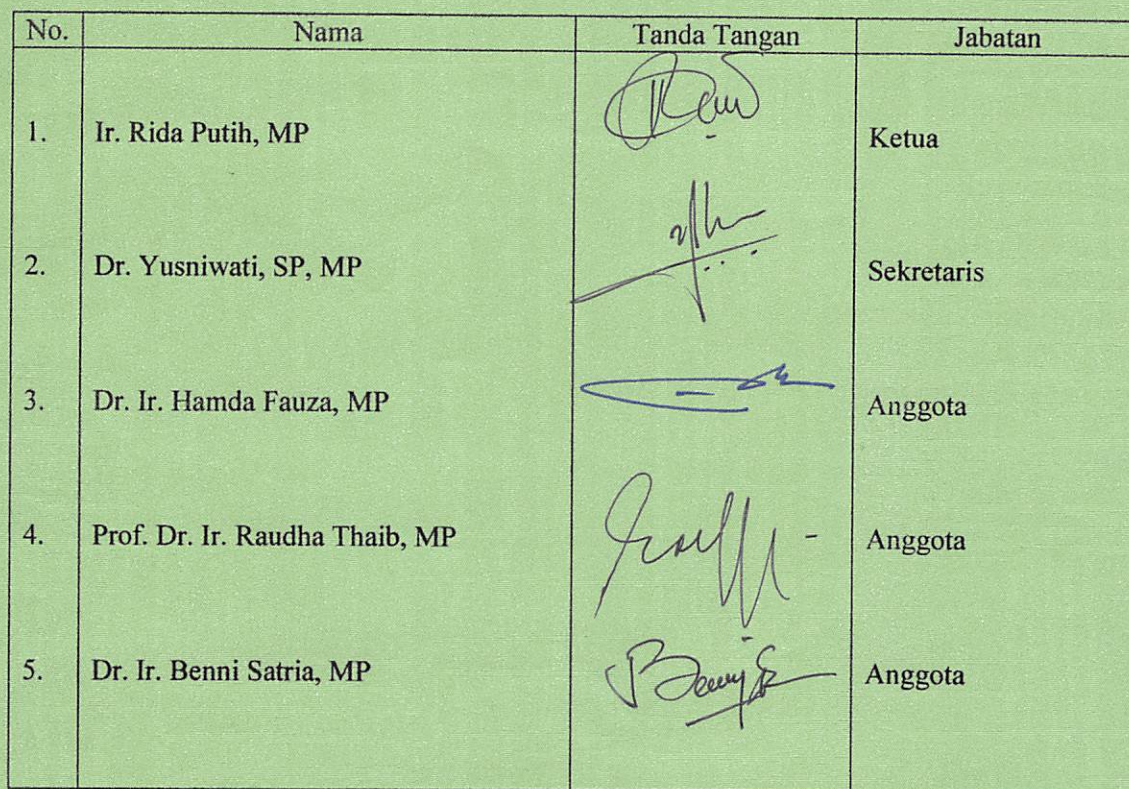 No. Nama Tanda Tangan Jabatan
1. Ir. Rida Putih, MP Ketua
2. Dr. Yusniwati, SP, MP Sekretaris
3. Dr. Ir. Hamda Fauza, MP Anggota
4. Prof. Dr. Ir. Raudha Thaib, MP Anggota
5. Dr. Ir. Benni Satria, MP Anggota